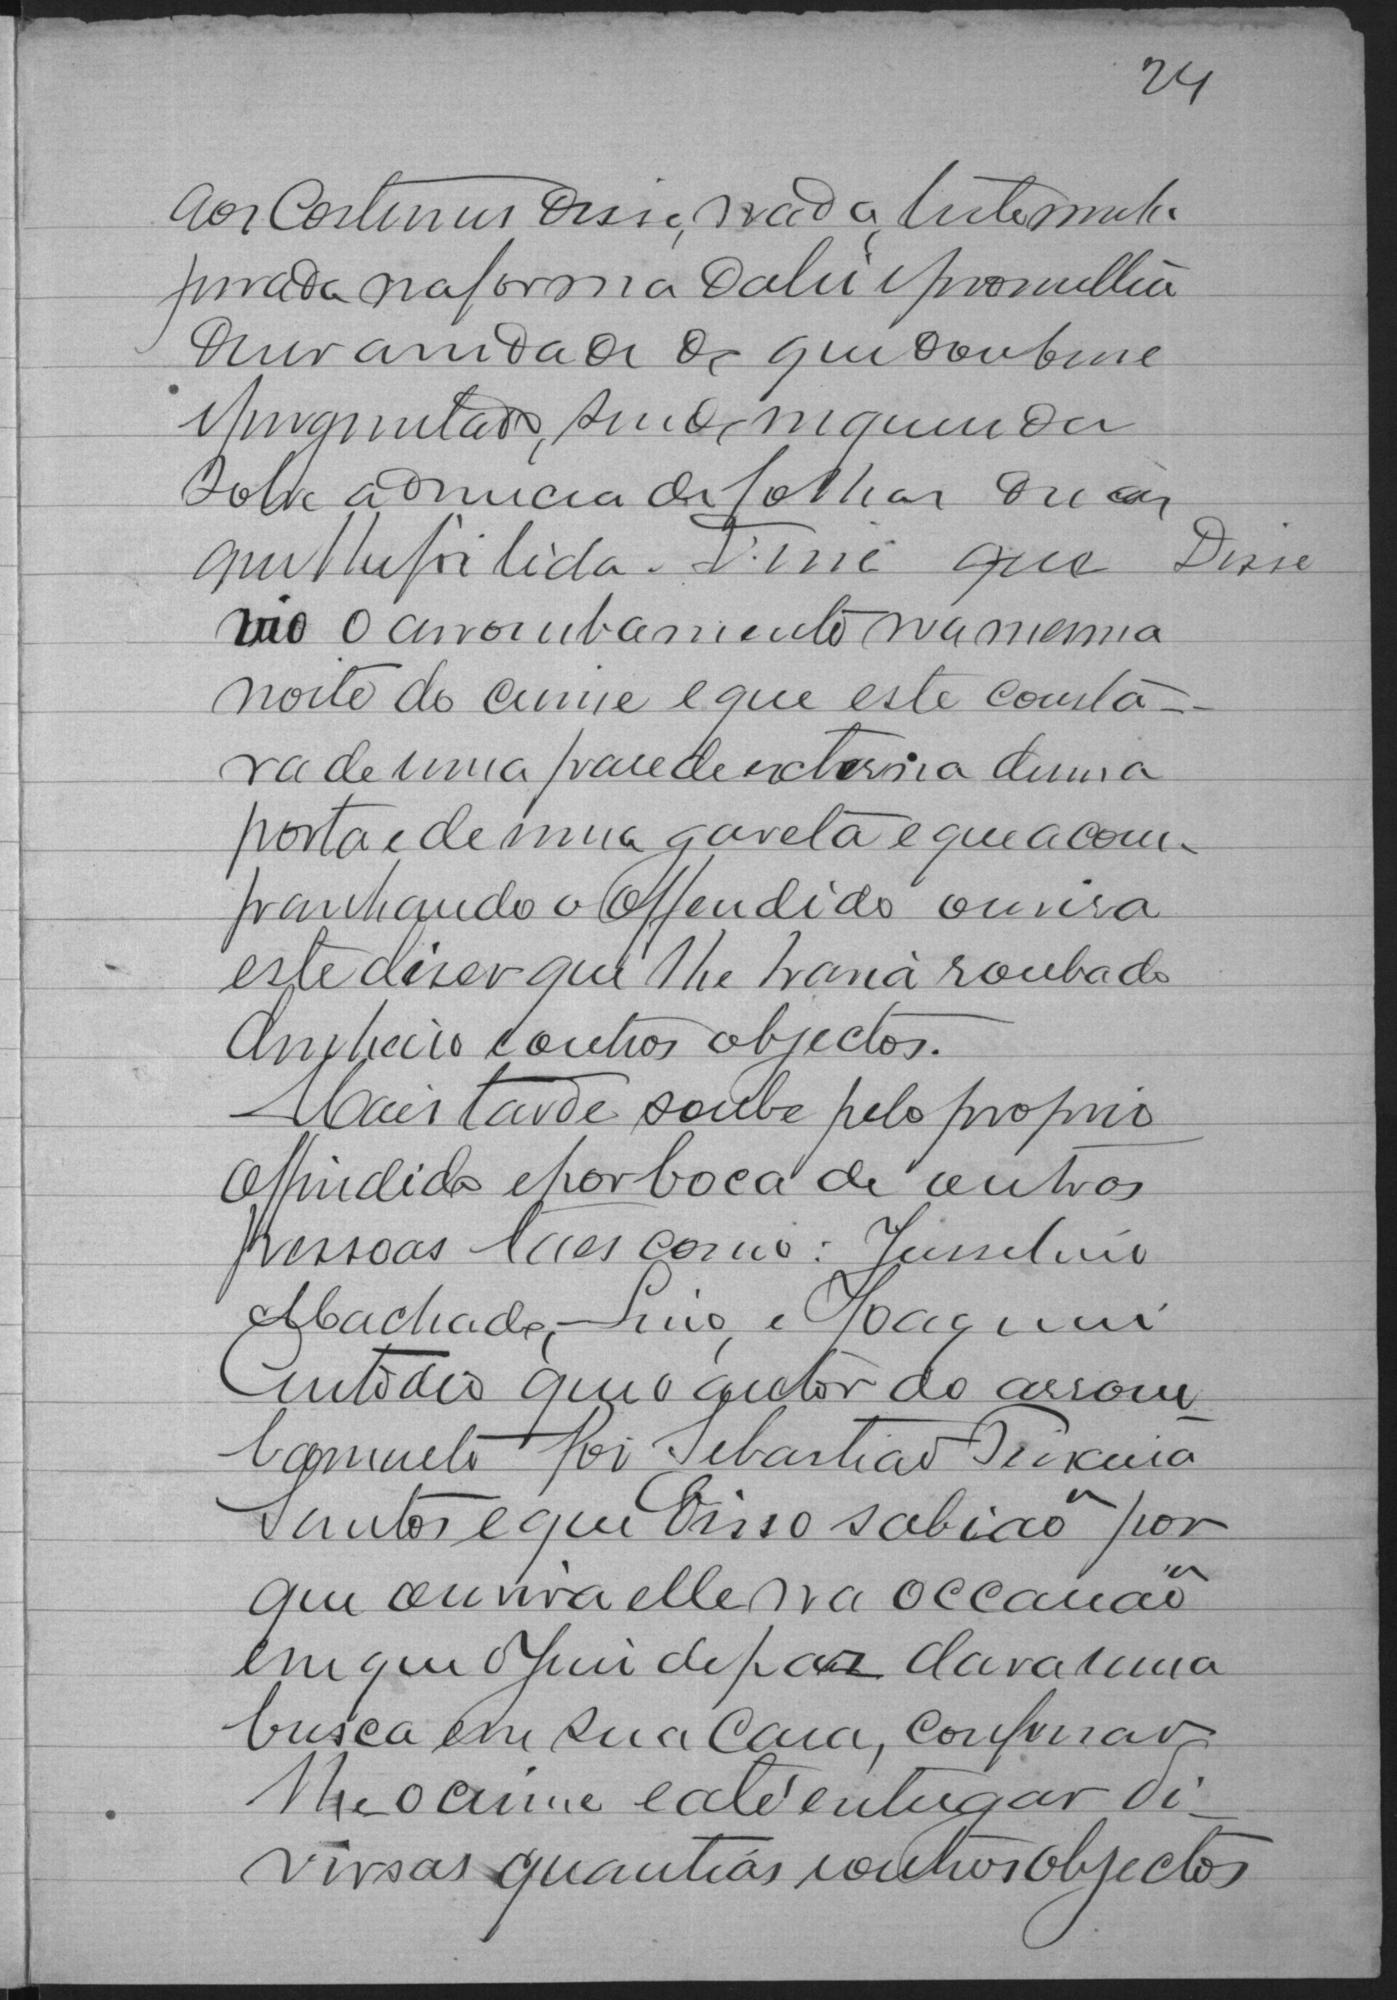 24
aos Costumes disse, nada, testemunha
jurada na forma da lei e prometteu
dizer a verdade do que soubesse
e perguntado, sendo inquerida
sobre a denuncia de folhas duas,
que lhe foi lida. Disse que Disse
vio o arrombamento na mesma
noite do crime e que este consta-
ra de uma parede externa duma
porta e de uma gaveta e que acom-
panhando o Offendido ouvira
este diser que lhe havia roubado
dinheiro e outros objectos.
Mais tarde soube pelo proprio
offendido e por boca de outros
pessoas táes como: Jusselino
Machado, Lino, e Joaquim
Custodio que o autor do arrom
bamento foi Sebastião Teixeira
Santos e que disso sabiaõ por
que ouvira elle na occasiaõ
em que o Juis de paz dava uma
busca em sua casa, confessar
lhe o crime e até entregar di-
versas quantias e outros objectos